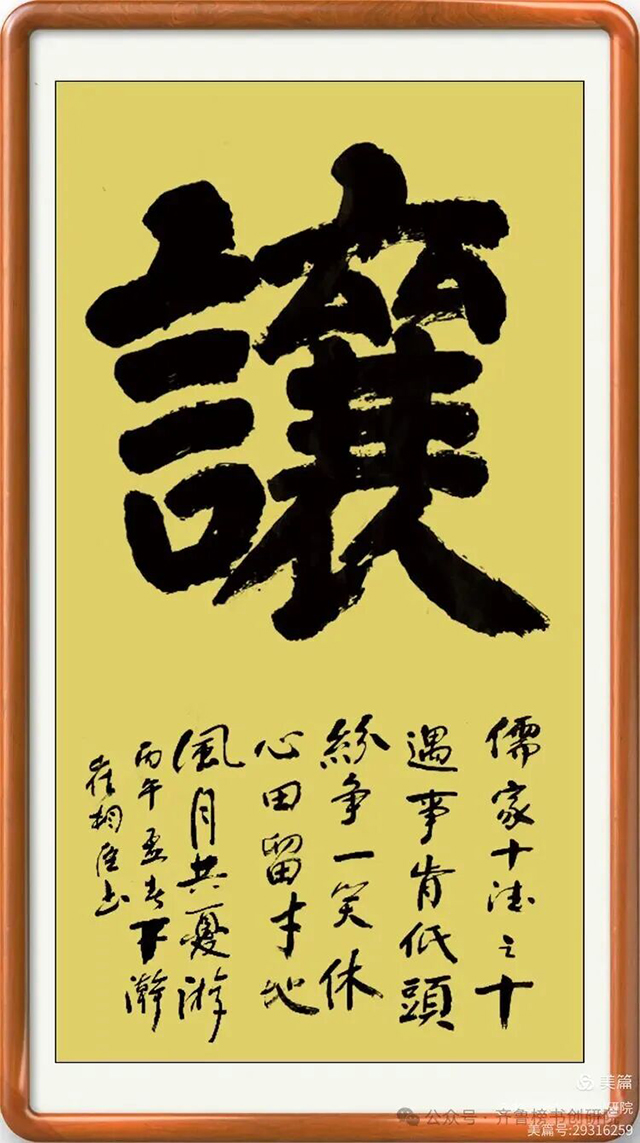 讓
儒家十德之十
遇事肯低頭
紛争一笑休
心田留才地
風月共憂游
丙午孟春下瀚
崔相
书
美篇
公众号·齐鲁榜书创研院
美篇号:29316259